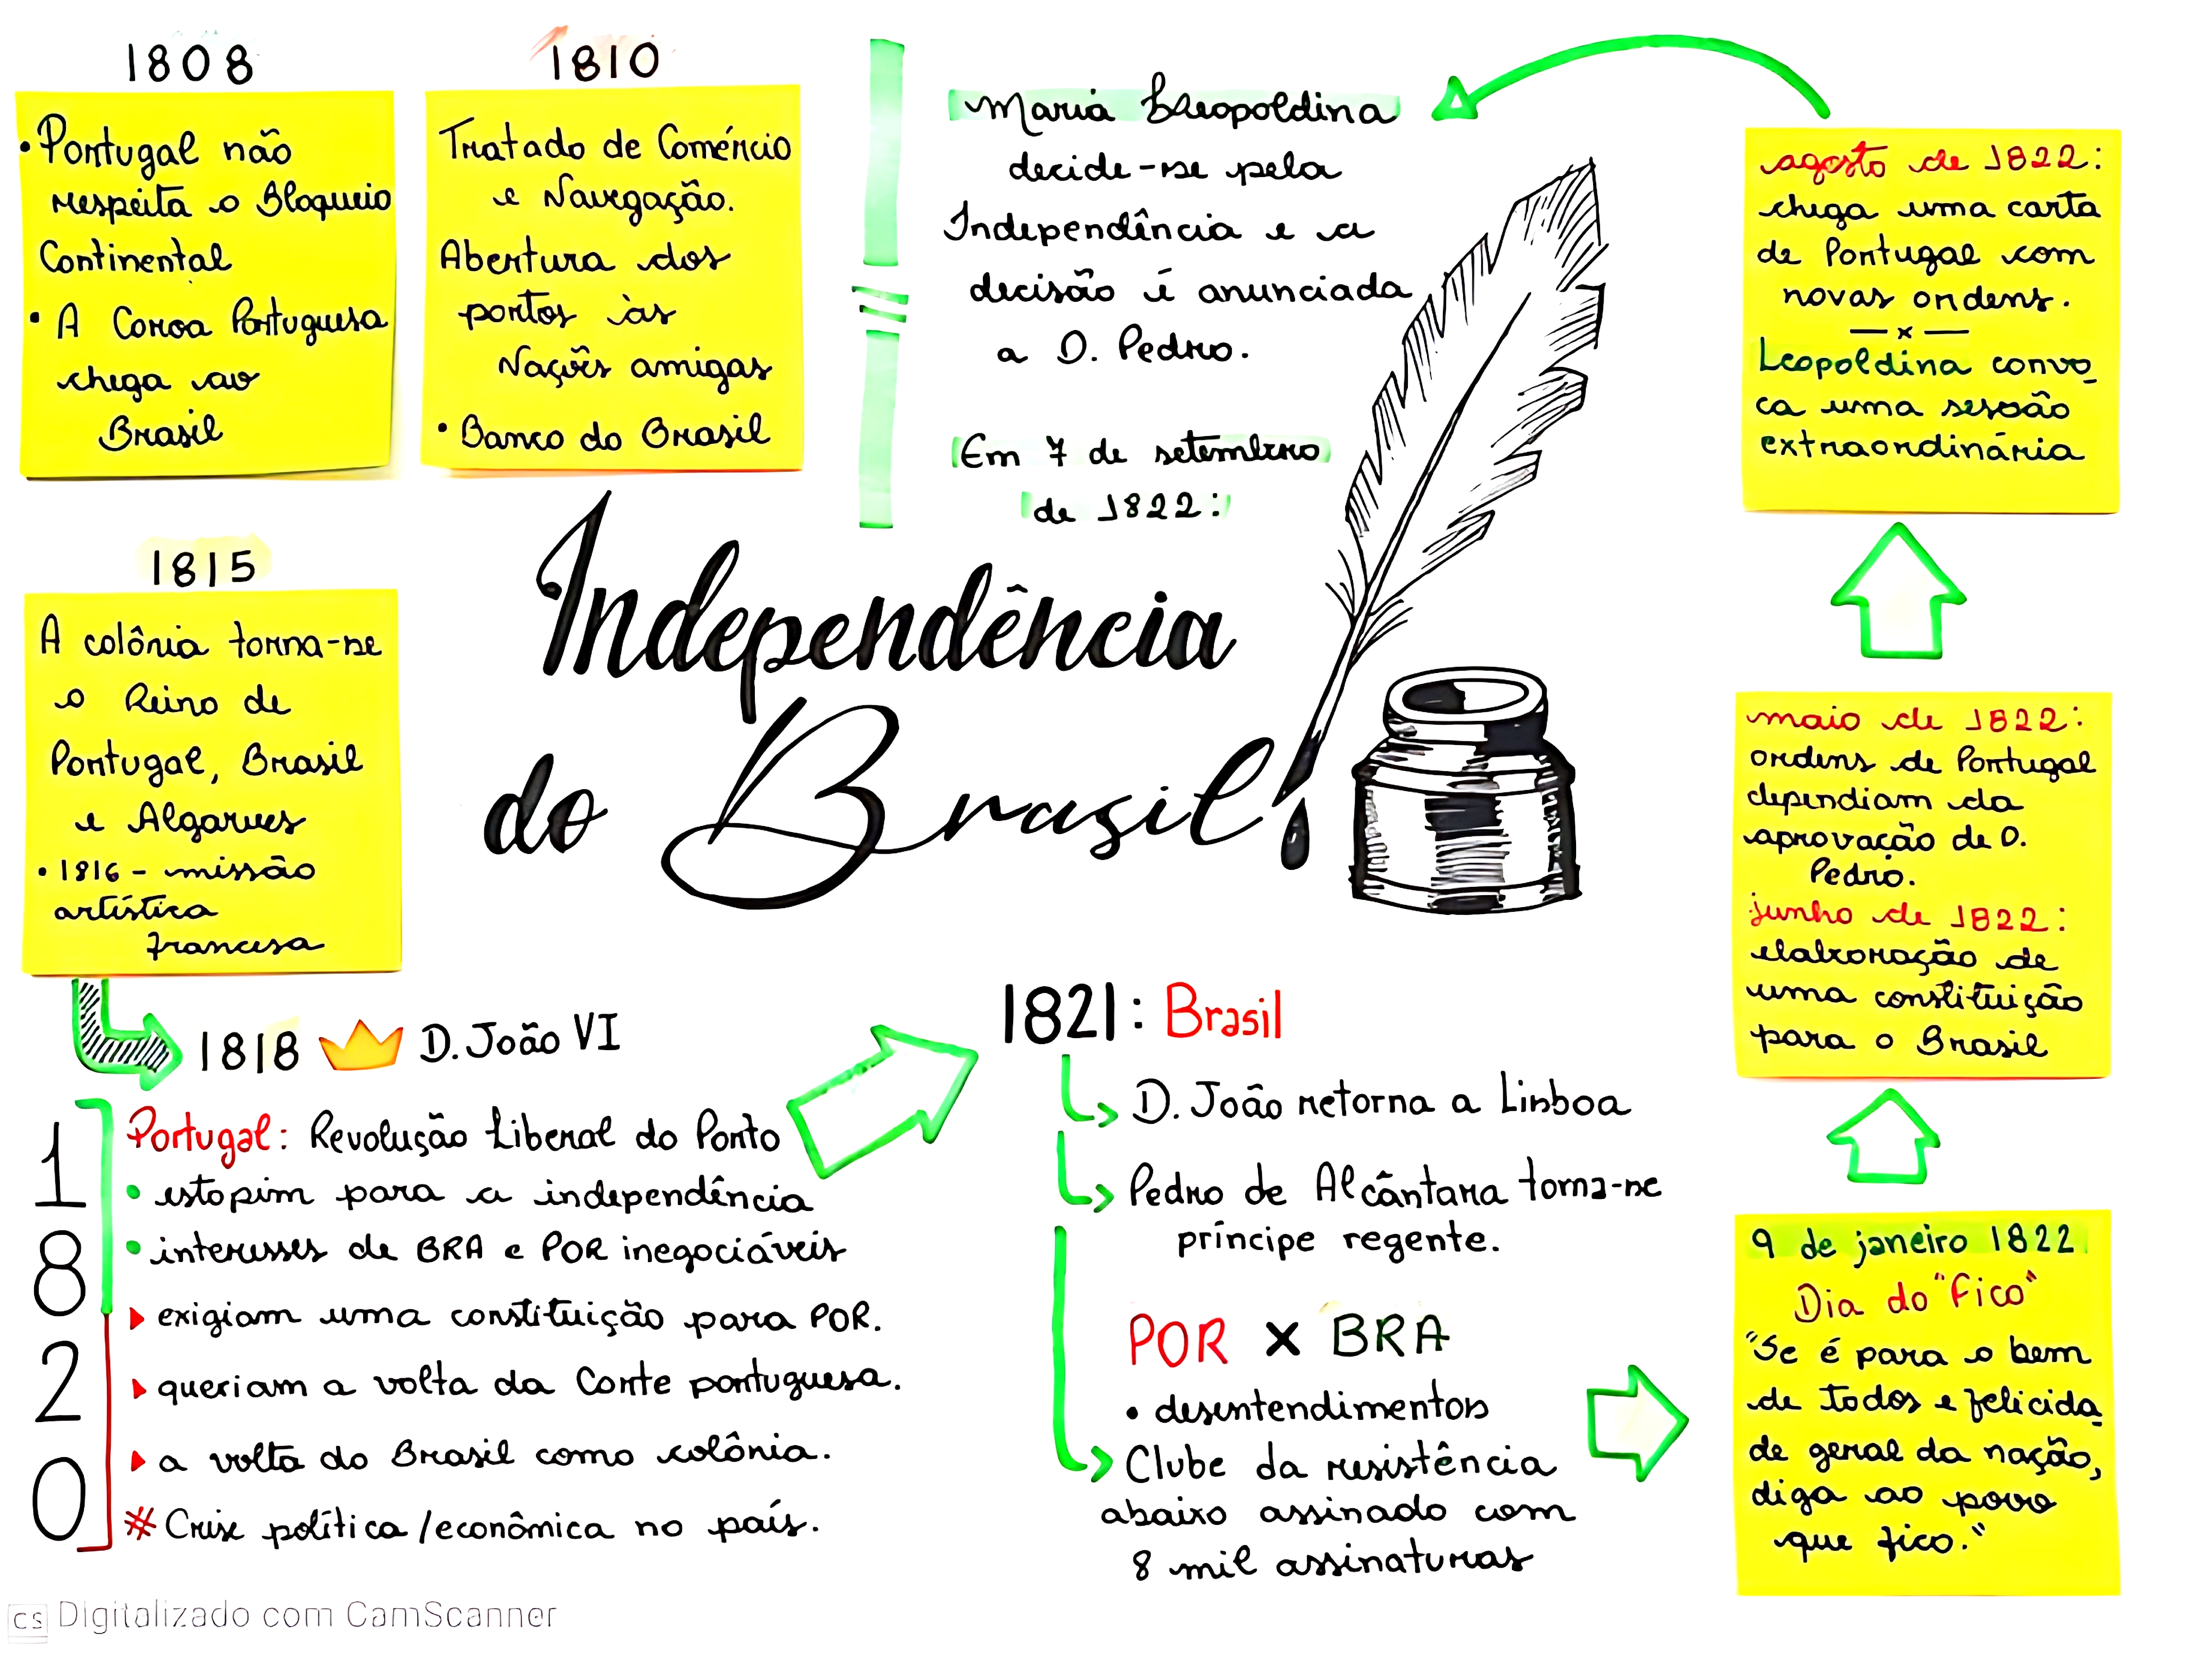 1808
• Portugal não
respeita o Bloqueio
Continental
• A Coroa Portuguesa
chega ao
Brasil
1810
Tratado de Comércio
e Navegação.
Abertura dos
portos às
Nações amigas
• Banco do Brasil
1815
A colônia torna-se
o Reino de
Portugal, Brasil
e Algarves
• 1816 - missão
artística
francesa
1818 D. João VI
1820
Portugal: Revolução Liberal do Porto
• estopim para a independência
• interesses de BRA e POR inegociáveis
exigiam uma constituição para POR.
queriam a volta da Corte portuguesa.
a volta do Brasil como colônia.
# Crise política/econômica no país.
1821: Brasil
D. João retorna a Lisboa
Pedro de Alcântara torna-se
príncipe regente.
POR x BRA
• desentendimentos
Clube da resistência
abaixo assinado com
8 mil assinaturas
9 de janeiro 1822
Dia do "Fico"
"Se é para o bem
de todos e felicida
de geral da nação,
diga ao povo
que fico."
maio de 1822:
ordens de Portugal
dependiam da
aprovação de D.
Pedro.
junho de 1822:
elaboração de
uma constituição
para o Brasil
agosto de 1822:
chega uma carta
de Portugal com
novas ordens.
— x —
Leopoldina convo
ca uma sessão
extraordinária
Maria Leopoldina
decide-se pela
Independência e a
decisão é anunciada
a D. Pedro.
Em 7 de setembro
de 1822:
Independência
do Brasil
CS Digitalizado com CamScanner